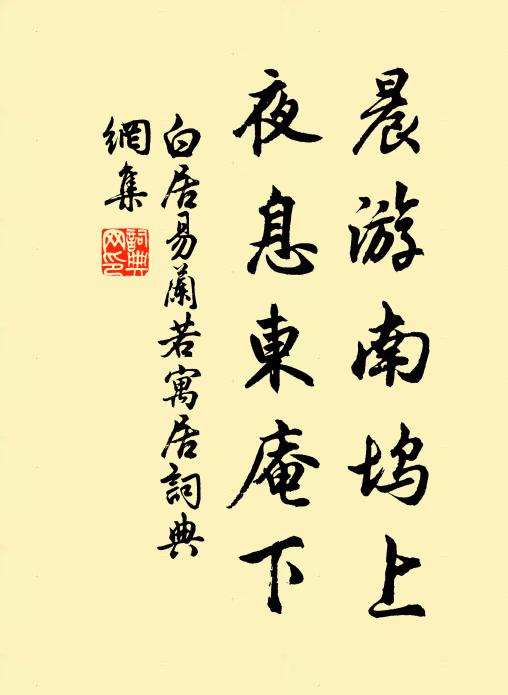 晨游南坞上
夜息東庵下
白居易蘭若寓居詞典
網集
詞典網印